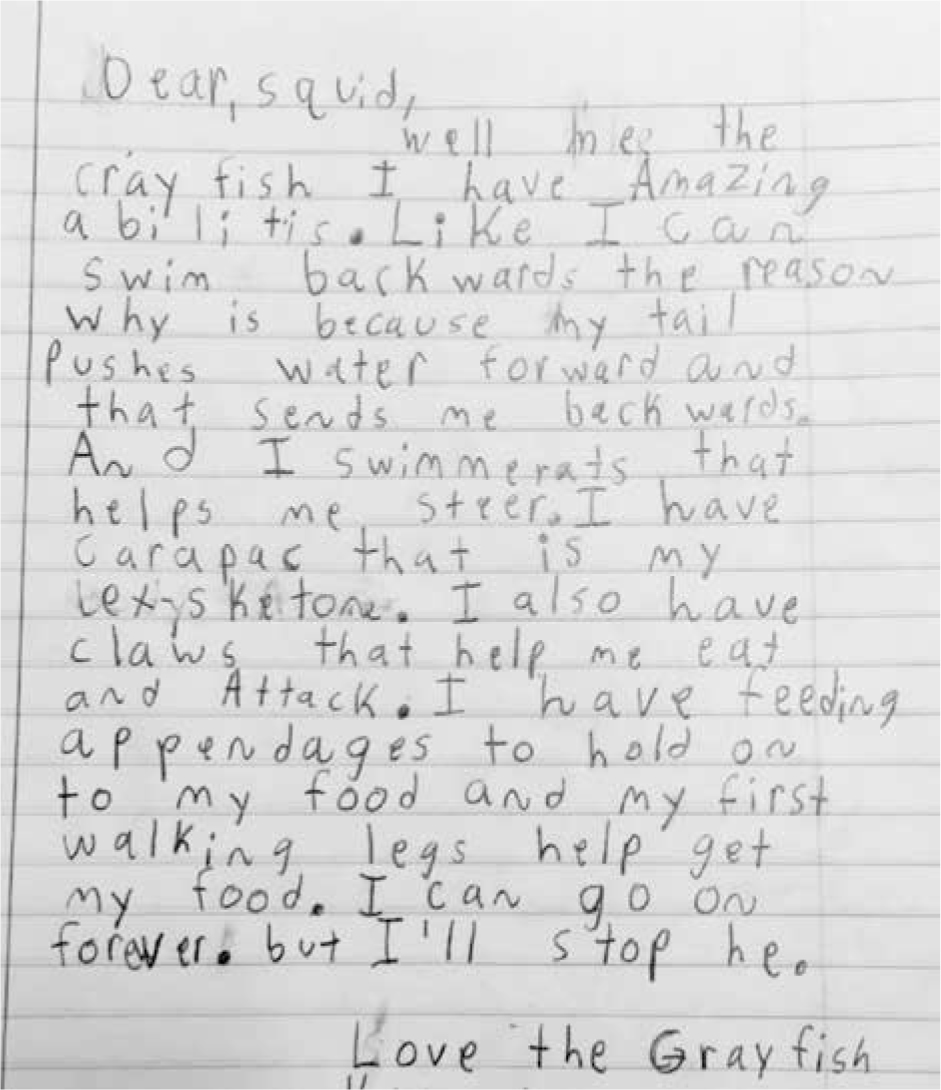 Dear, squid,
well mee the
cray fish I have Amazing
abilitis. Like I can
swim backwards the reason
why is because my tail
Pushes water forward and
that sends me back wards.
And I swimmerats that
helps me steer. I have
carapac that is my
I also have
claws that help me eat
and Attack. I have feeding
appendages to hold on
to my food and my first
walking legs help get
my food. I can go on
forever. but I'll stop he.
Love the Grayfish